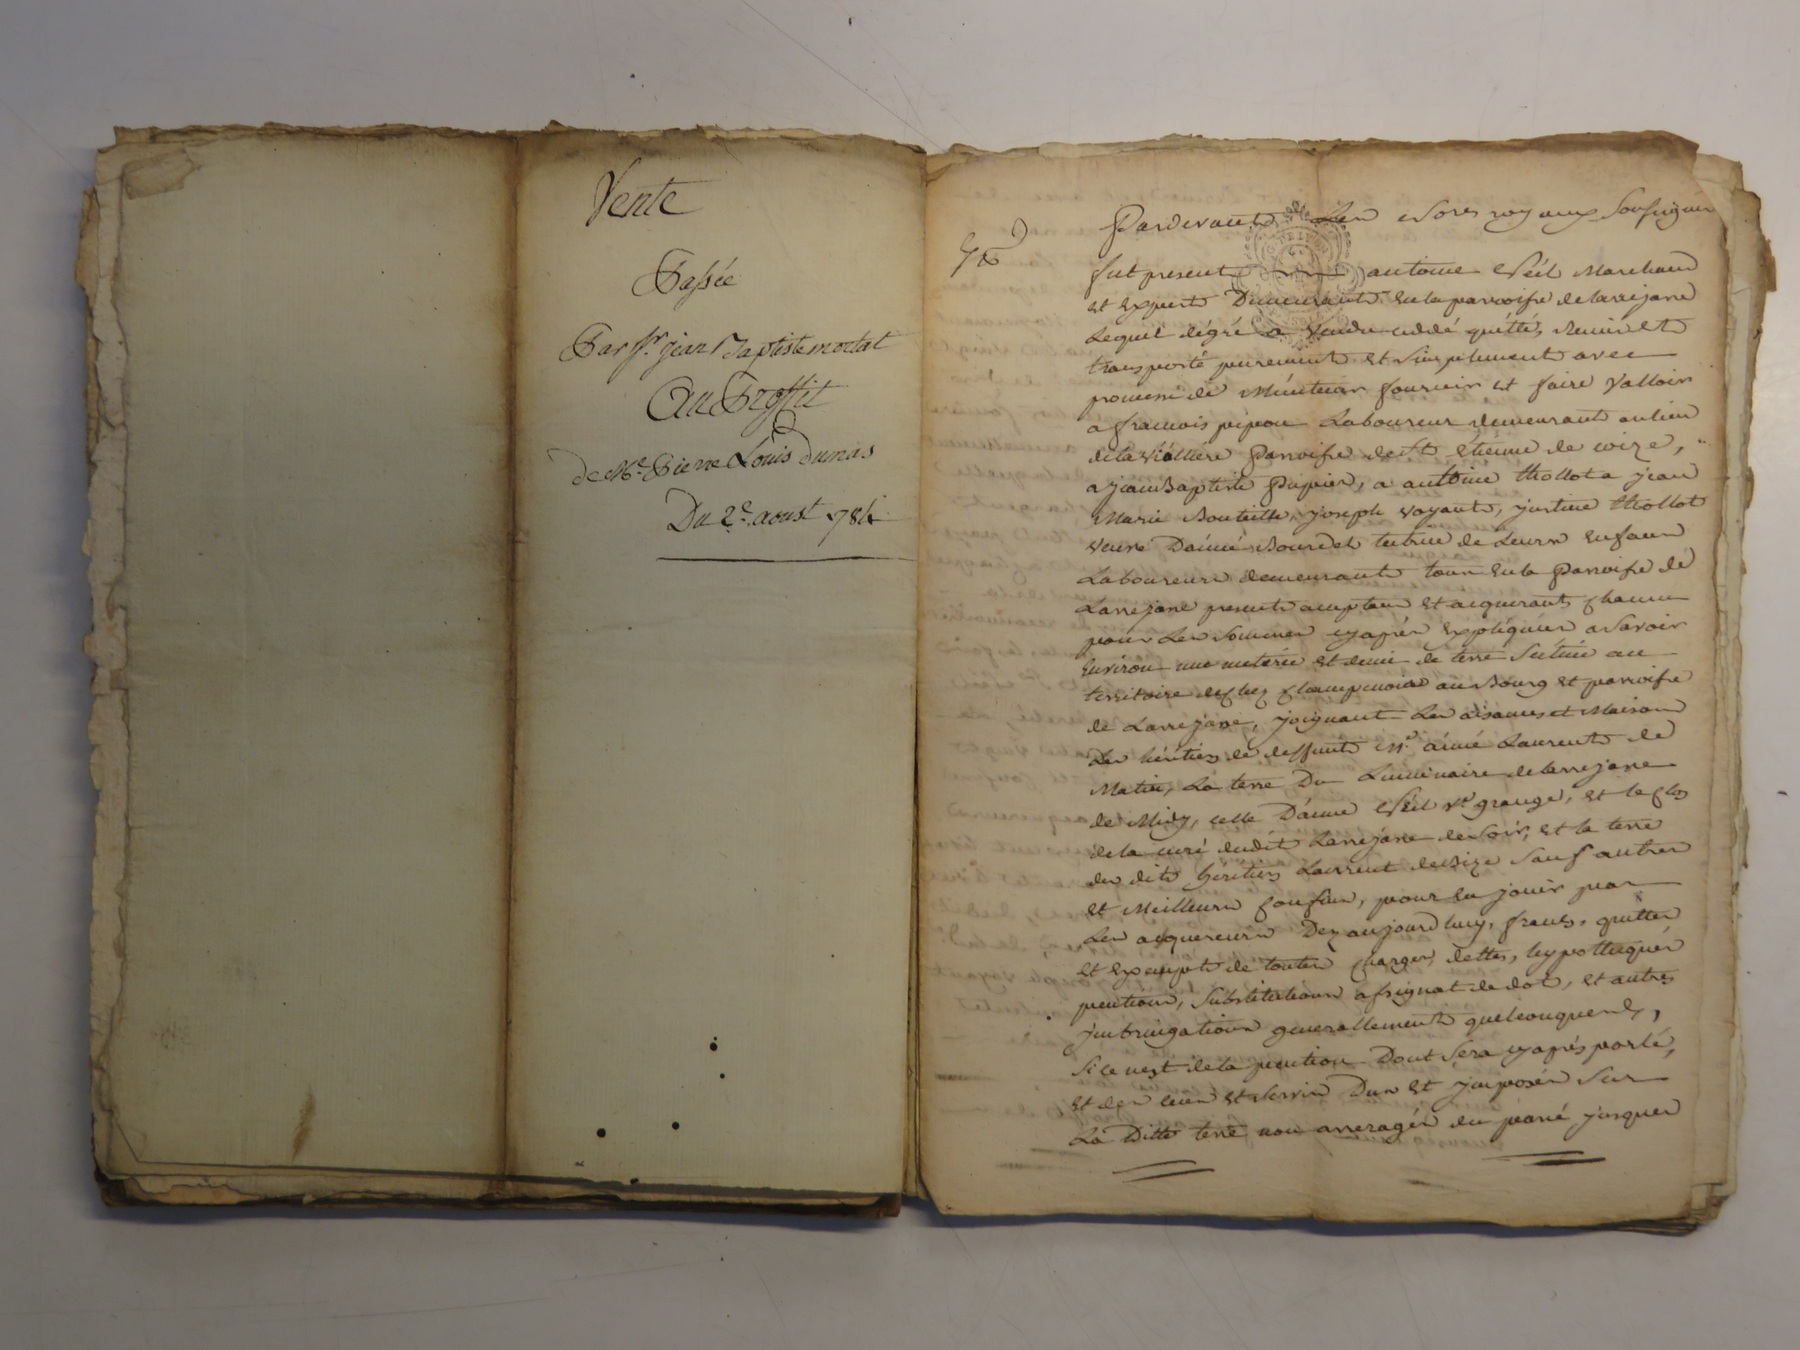 Vente
Passée
Par Sr. jean Baptiste mortat
Au Proffit
de Me. Pierre Louis Dumas
Du 2e. aoust 1784
Pardevant Les Nores royaux Soussignes
fut present antoine Néél Marchand
et Expert Demeurant En la parroisse de larrejane
Lequel dégré a vendu cedé quitté, remis et
transporté purement et simplement avec
promesse de Maintenir fournir et faire valloir
a francois pipon Laboureur demeurant au lieu
de la Parroisse de St. étienne de
a jean Baptiste Papier, a antoine thollot a jean
Marie Bouteille, joseph voyant, justine thollot
veuve D'aimé Bourdel tutrice de Leurs Enfans
Laboureurs demeurants tous En la Parroisse de
Larrejane presents acceptans et acquerants chacun
pour Les Sommes cyaprés Expliquées a Savoir
Environ une meterée et demi de terre Scituée au
territoire de chez au Bourg et parroisse
de Larrejane, joignant Les aisances et Maison
Des héritiers de deffunt Mr. aimé Laurent de
Matin, La terre Du Luminaire de larrejane
de Midy, celle D'aime Néél dt. grange, et le clos
de la cure dudit Larrejane de Soir, et la terre
des dits héritiers Laurent de Bize Sauf autres
et Meilleurs confins, pour En jouir par
Les acquereurs Dez aujourd'huy, francs, quittes
et Exempts de toutes charges, dettes, hypotheques
pentions, Substitutions assignat de dot, et autres
jmbringations generallement quelconques,
Si ce nest de la pention Dont Sera cyaprés parlé,
et des cens et Servis Dus et jmposés Sur
La Ditte terre non arreragés du passé jusques